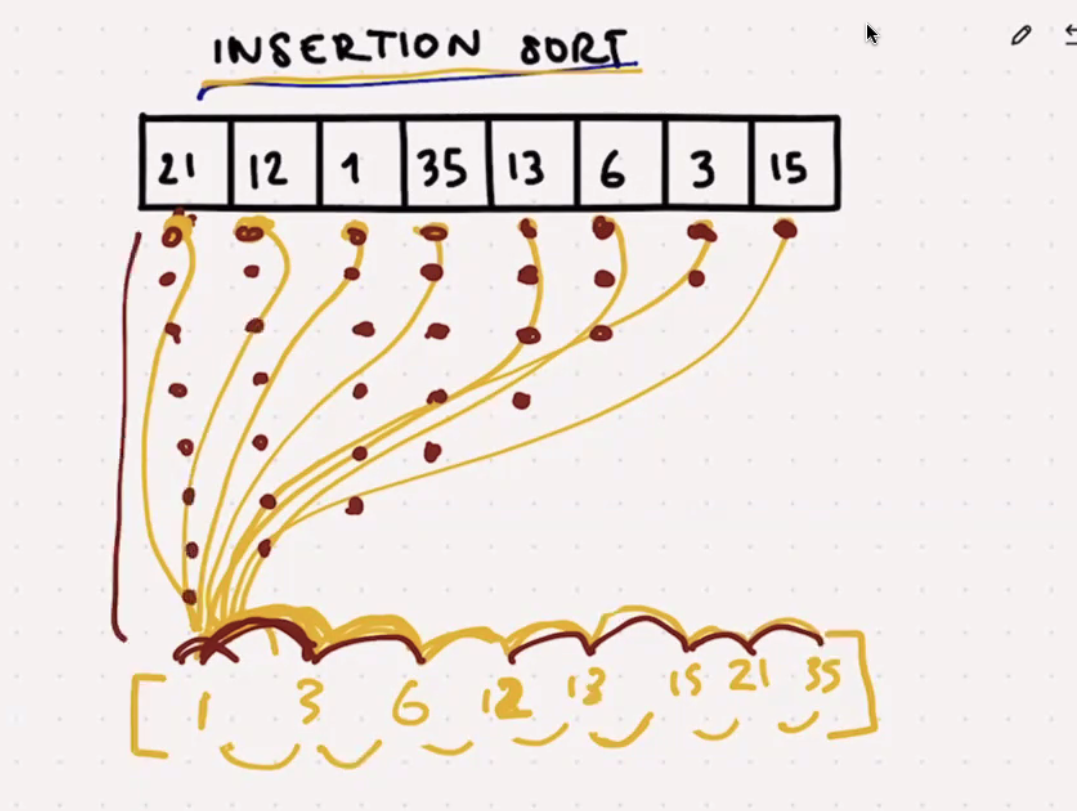 INSERTION SORT
21 12 1 35 13 6 3 15
[ 1 3 6 12 13 15 21 35 ]